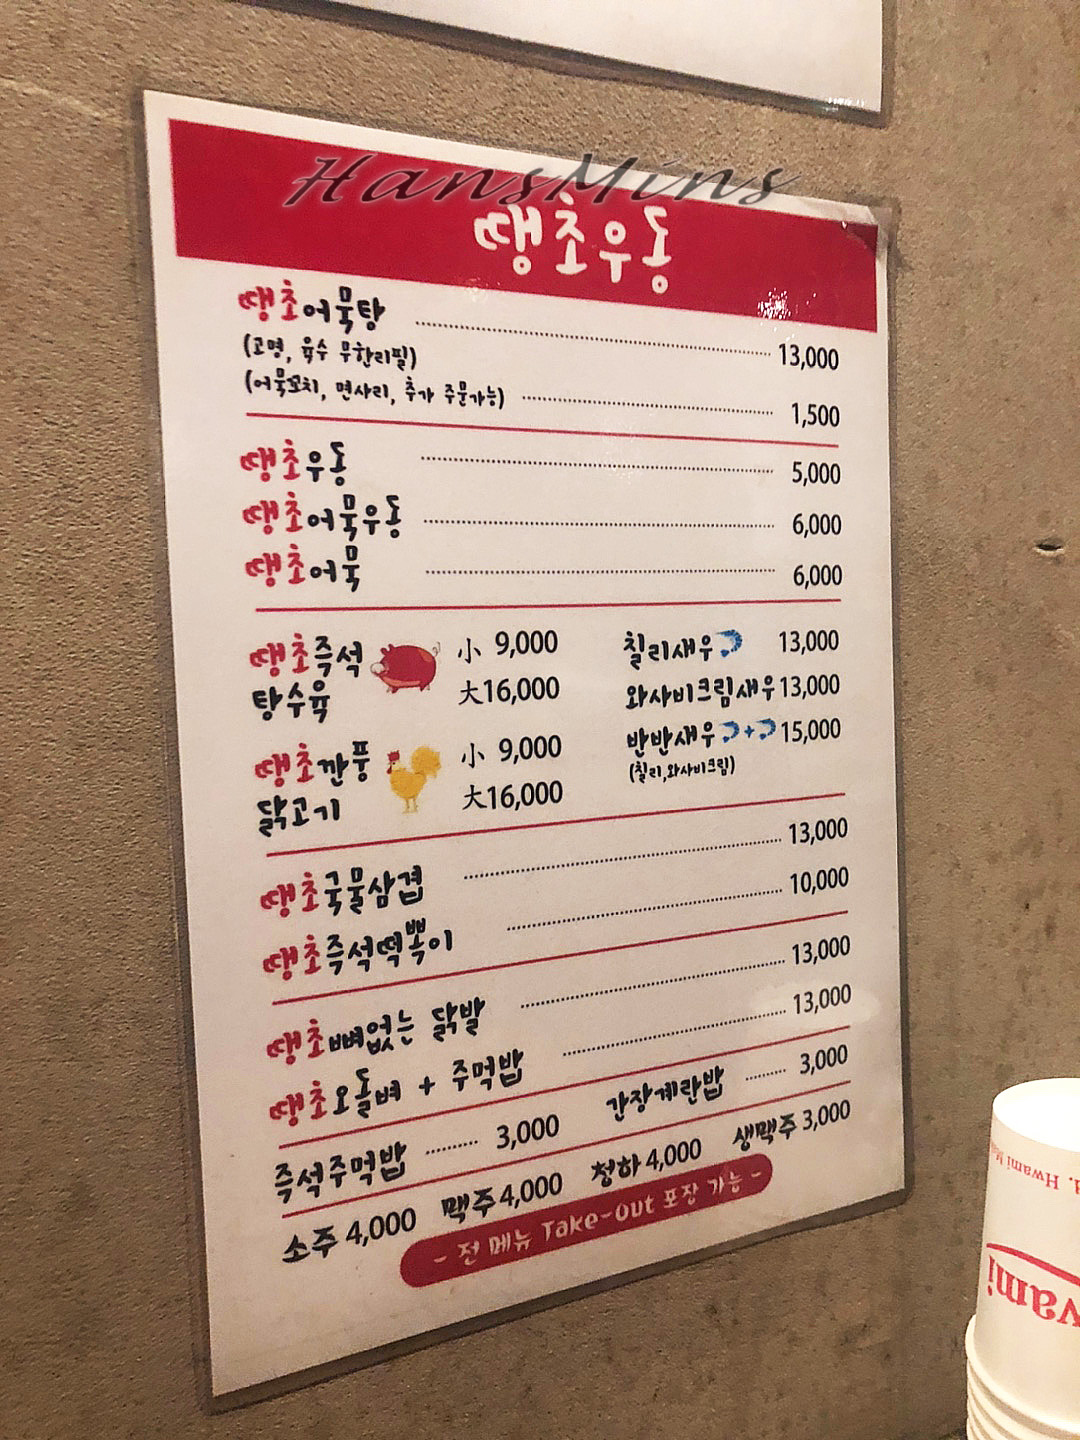 HansMins
땡초우동
땡초어묵탕 13,000
(고명, 육수 무한리필)
(어묵꼬치, 면사리, 추가 주문가능) 1,500
땡초우동 5,000
땡초어묵우동 6,000
땡초어묵 6,000
땡초즉석 小 9,000
탕수육 大16,000
땡초깐풍 小 9,000
닭고기 大16,000
칠리새우 13,000
와사비크림새우 13,000
반반새우 + 15,000
(칠리,와사비크림)
땡초국물삼겹 13,000
땡초즉석떡볶이 10,000
땡초뼈없는 닭발 13,000
땡초오돌뼈 + 주먹밥 13,000
즉석주먹밥 3,000 간장계란밥 3,000
소주 4,000 맥주 4,000 청하 4,000 생맥주 3,000
- 전 메뉴 Take-out 포장 가능 -
Hwami